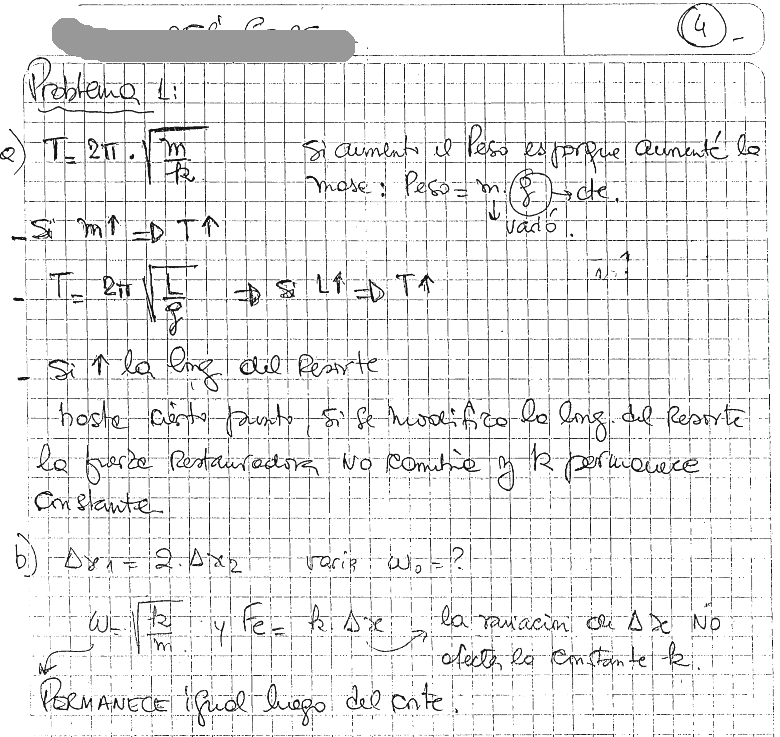 4 -
Problema 1:
a) T = 2π · √(m/k) Si aumentó el Peso es porque aumenté la
masa: Peso = m. g → cte.
↓ varió.
- Si m↑ ⇒ T↑
- T = 2π √(L/g) ⇒ Si L↑ ⇒ T↑
- Si ↑ la long del Resorte
hasta cierto punto, si se modifica la long. del Resorte
la fuerza Restauradora NO cambia y k permanece
constante
b) Δx1 = 2. Δx2 varía ω0 = ?
ω = √(k/m) y Fe = k. Δx → la variación en Δx NO
afecta la constante k.
PERMANECE igual luego del corte.